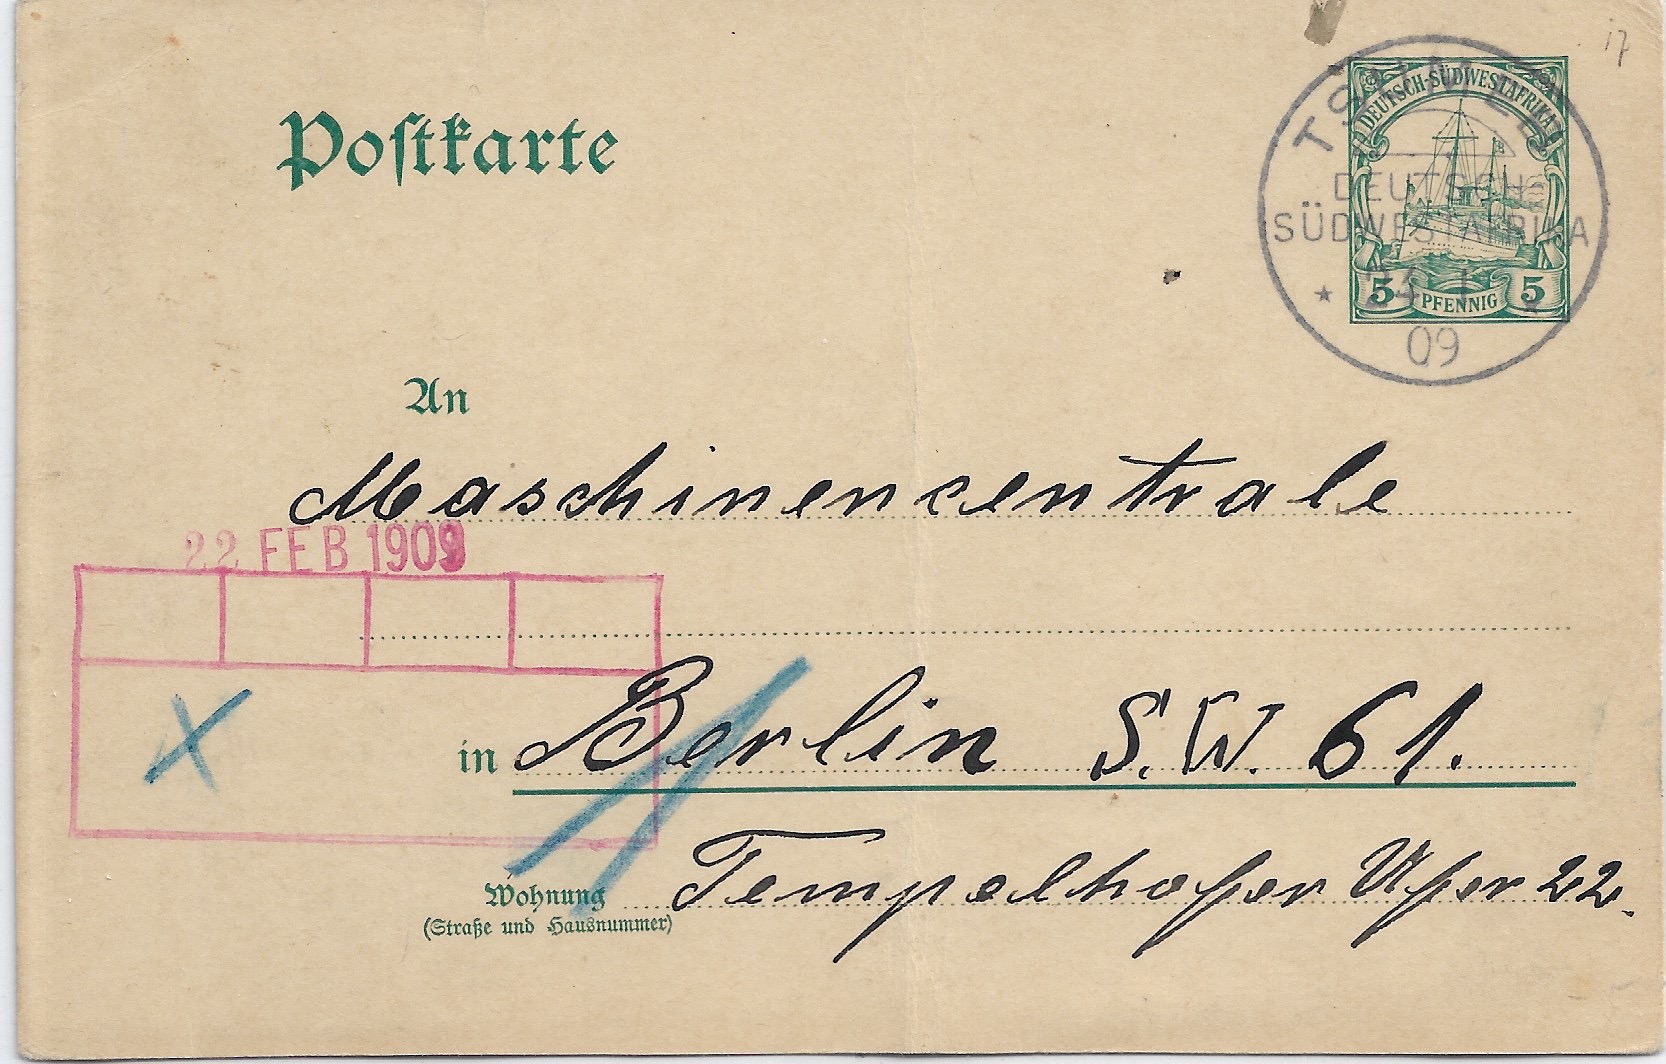 17
Postkarte
DEUTSCH-SÜDWESTAFRIKA
5 PFENNIG 5
TSUMEB
DEUTSCH-
SÜDWESTAFRIKA
09
An
Maschinencentrale
22 FEB 1909
in Berlin S.W. 61.
Wohnung Tempelhofer Ufer 22.
(Straße und Hausnummer)